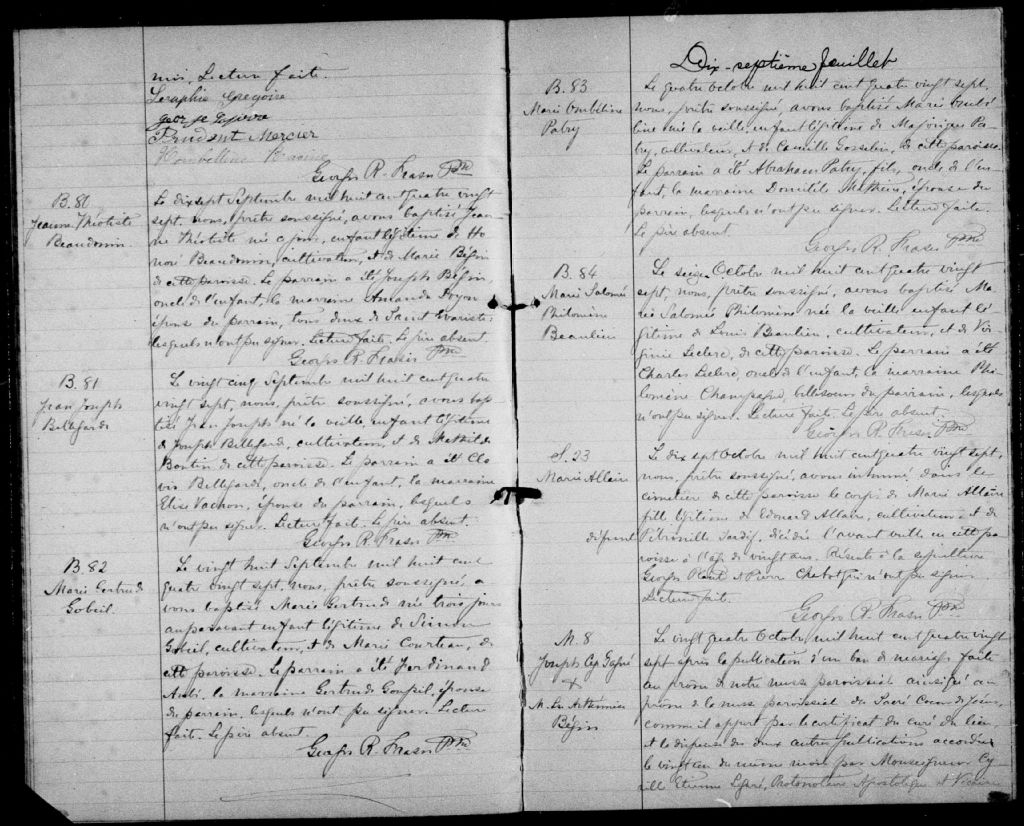 moi. Lecture faite.
Seraphie Gregoire
george
Prudent Mercier
Hombelline Racine
Georges R. Fraser Ptre
B. 80
Jeanne Théotiste
Beaudouin
Le dix sept Septembre mil huit cent quatre vingt
sept, nous, prêtre soussigné, avons baptisé Jean-
ne Théotiste née ce jour, enfant légitime de Ho
noré Beaudouin, cultivateur, et de Marie Bégin
de cette paroisse. Le parrain a été Joseph Bégin,
oncle de l'enfant, la marraine Amanda Poyon
épouse du parrain, tous deux de Saint Evariste;
lesquels n'ont pu signer. Lecture faite. Le père absent.
Georges R. Fraser Ptre
B. 81
Jean Joseph
Bellegarde
Le vingt cinq Septembre mil huit cent quatre
vingt sept, nous, prêtre soussigné, avons bap
tisé Jean Joseph né la veille, enfant légitime
de Joseph Bellegarde, cultivateur, et de Mathilde
Boutin de cette paroisse. Le parrain a été Clo
vis Bellegarde, oncle de l'enfant, la marraine
Elise Vachon, épouse du parrain, lesquels
n'ont pu signer. Lecture faite. Le père absent.
Georges R. Fraser Ptre
B. 82
Marie Gertrude
Gobeil
Le vingt huit Septembre mil huit cent
quatre vingt sept, nous, prêtre soussigné, a
vons baptisé Marie Gertrude née trois jours
auparavant enfant légitime de Siméon
Gobeil, cultivateur, et de Marie Courteau, de
cette paroisse. Le parrain a été Ferdinand
Aubé, la marraine Gertrude Goupil, épouse
du parrain, lesquels n'ont pu signer. Lecture
faite. Le père absent.
Georges R. Fraser Ptre
Dix-septième feuillet
B. 83
Marie Ombéline
Patry
Le quatre Octobre mil huit cent quatre vingt sept,
nous, prêtre soussigné, avons baptisé Marie Ombé
line née la veille, enfant légitime de Majorique Pa
try, cultivateur, et de Camille Gosselin, de cette paroisse.
Le parrain a été Abraham Patry, fils, oncle de l'en
fant, la marraine Domitile Mathieu, épouse du
parrain, lesquels n'ont pu signer. Lecture faite.
Le père absent.
Georges R. Fraser Ptre
B. 84
Marie Salomée
Philomène
Beaulieu
Le seize Octobre mil huit cent quatre vingt
sept, nous, prêtre soussigné, avons baptisé Ma
rie Salomée Philomène née la veille enfant lé
gitime de Louis Beaulieu, cultivateur, et de Vir
ginie Leclerc, de cette paroisse. Le parrain a été
Charles Leclerc, oncle de l'enfant, la marraine Phi
lomène Champagne, belle soeur du parrain, lesquels
n'ont pu signer. Lecture faite. Le père absent.
Georges R. Fraser Ptre
S. 23
Marie Allaire
Le dix sept Octobre mil huit cent quatre vingt sept,
nous, prêtre soussigné, avons inhumé dans le
cimetière de cette paroisse le corps de Marie Allaire
fille légitime de Edouard Allaire, cultivateur, et de
défunte Pétronille Tardif, décédée l'avant veille en cette pa
roisse à l'âge de vingt ans. Présents à la sépulture
Georges Plante et Pierre Chabot qui n'ont pu signer.
Lecture faite.
Georges R. Fraser Ptre
M. 8
Joseph Cyp Gagné
&
M. Ls Arthémise
Bégin
Le vingt quatre Octobre mil huit cent quatre vingt
sept après la publication d'un ban de mariage faite
au prône de notre messe paroissiale ainsi qu'au
prône de la messe paroissiale du Sacré Coeur de Jésus,
comme il appert par le certificat du curé du lieu
et la dispense des deux autres publications accordée
le vingt un du même mois par Monseigneur Cy
rille Etienne Legaré, Protonotaire Apostolique et Vicaire